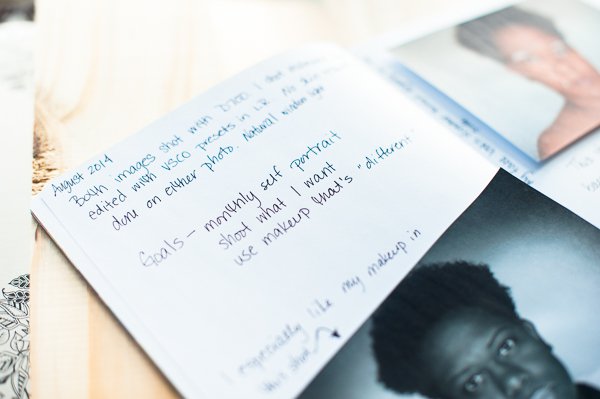 August 2014
Both images shot with D700 & that
edited with VSCO presets in LR. No skin
done on either photo. Natural window light
Goals - monthly self portrait
shoot what I want
use makeup that's "different"
I especially like my makeup in
this shot